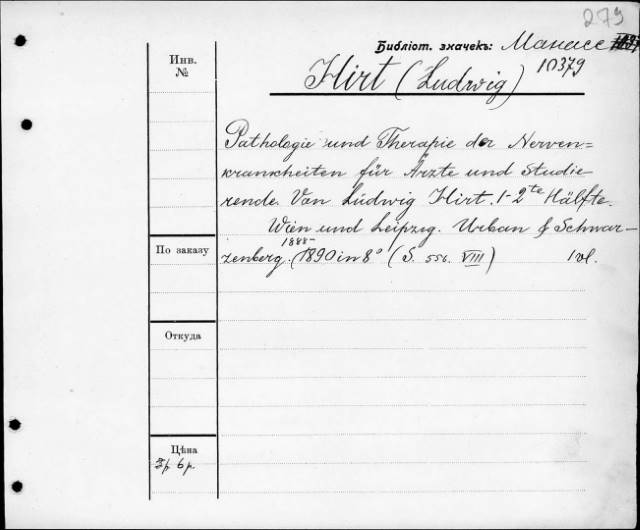 279
Библіот. значекъ: Манассе
10379
Инв.
№
Hirt (Ludwig)
Pathologie und Therapie der Nerven=
krankheiten für Ärzte und Studie-
rende. Von Ludwig Hirt. 1-2te Hälfte.
Wien und Leipzig. Urban & Schwar-
1888-
zenberg. (1890 in 8° (S. 556. VIII) 1 vl.
По заказу
Откуда
Цѣна
6 р.